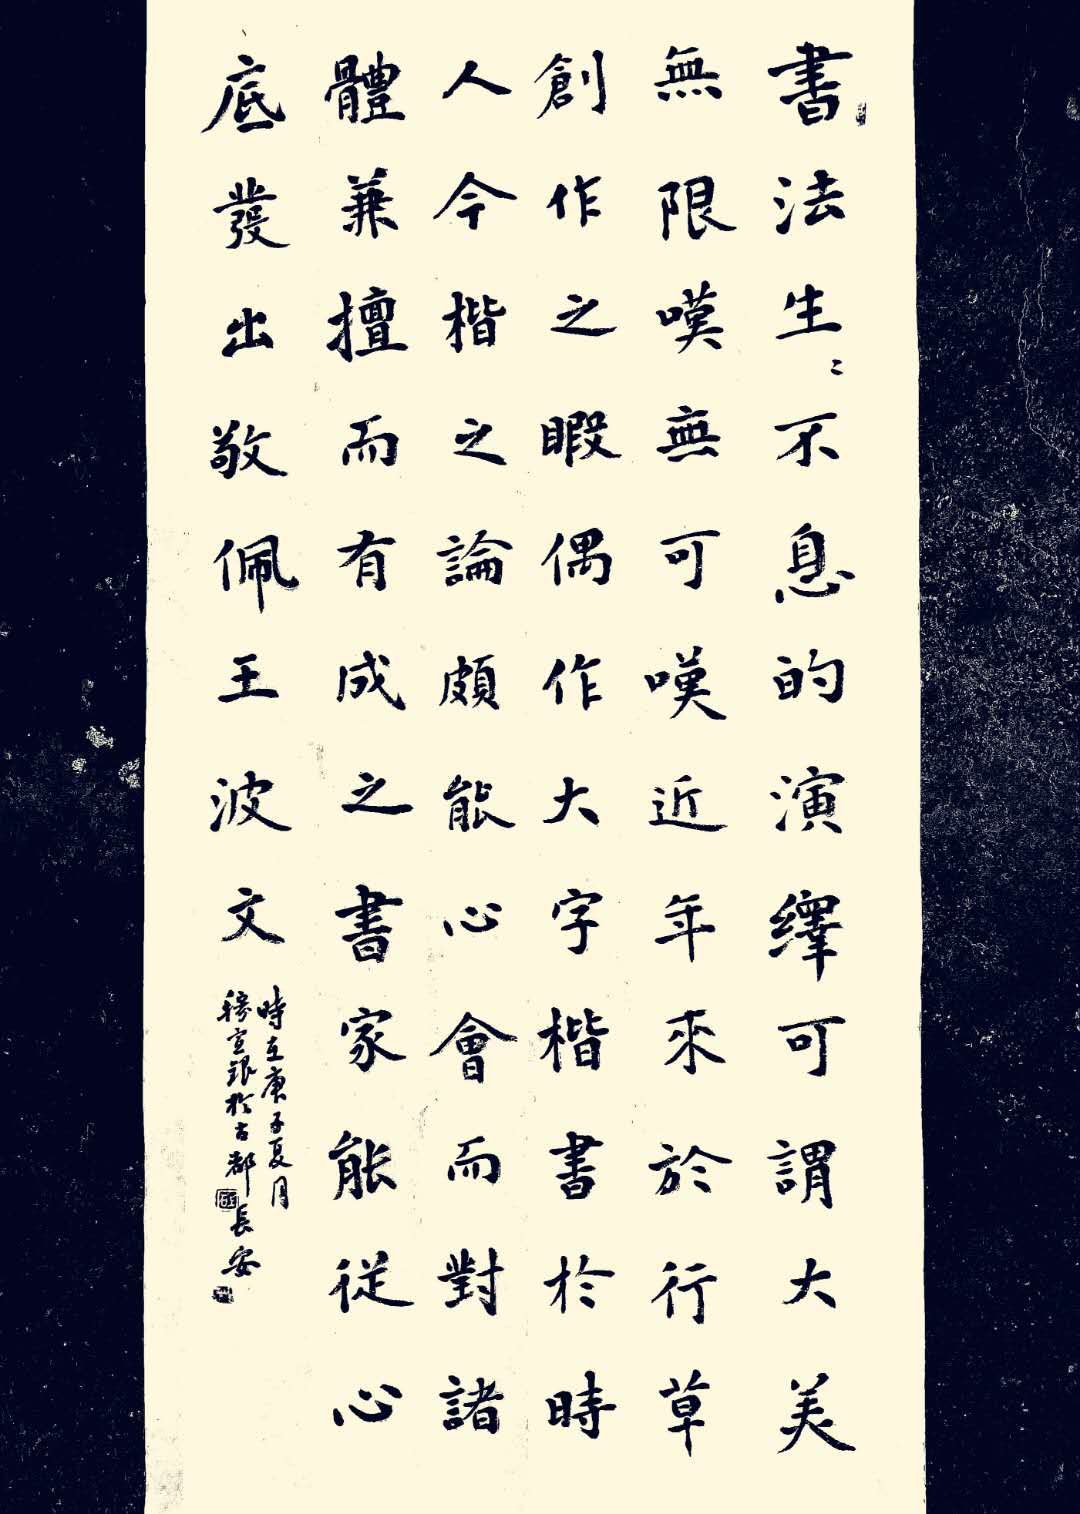 書法生〻不息的演繹可謂大美
無限嘆無可嘆近年來於行草
創作之暇偶作大字楷書於時
人今楷之論頗能心會而對諸
體兼擅而有成之書家能從心
底發出敬佩王波文
時在庚子夏月
於古都長安